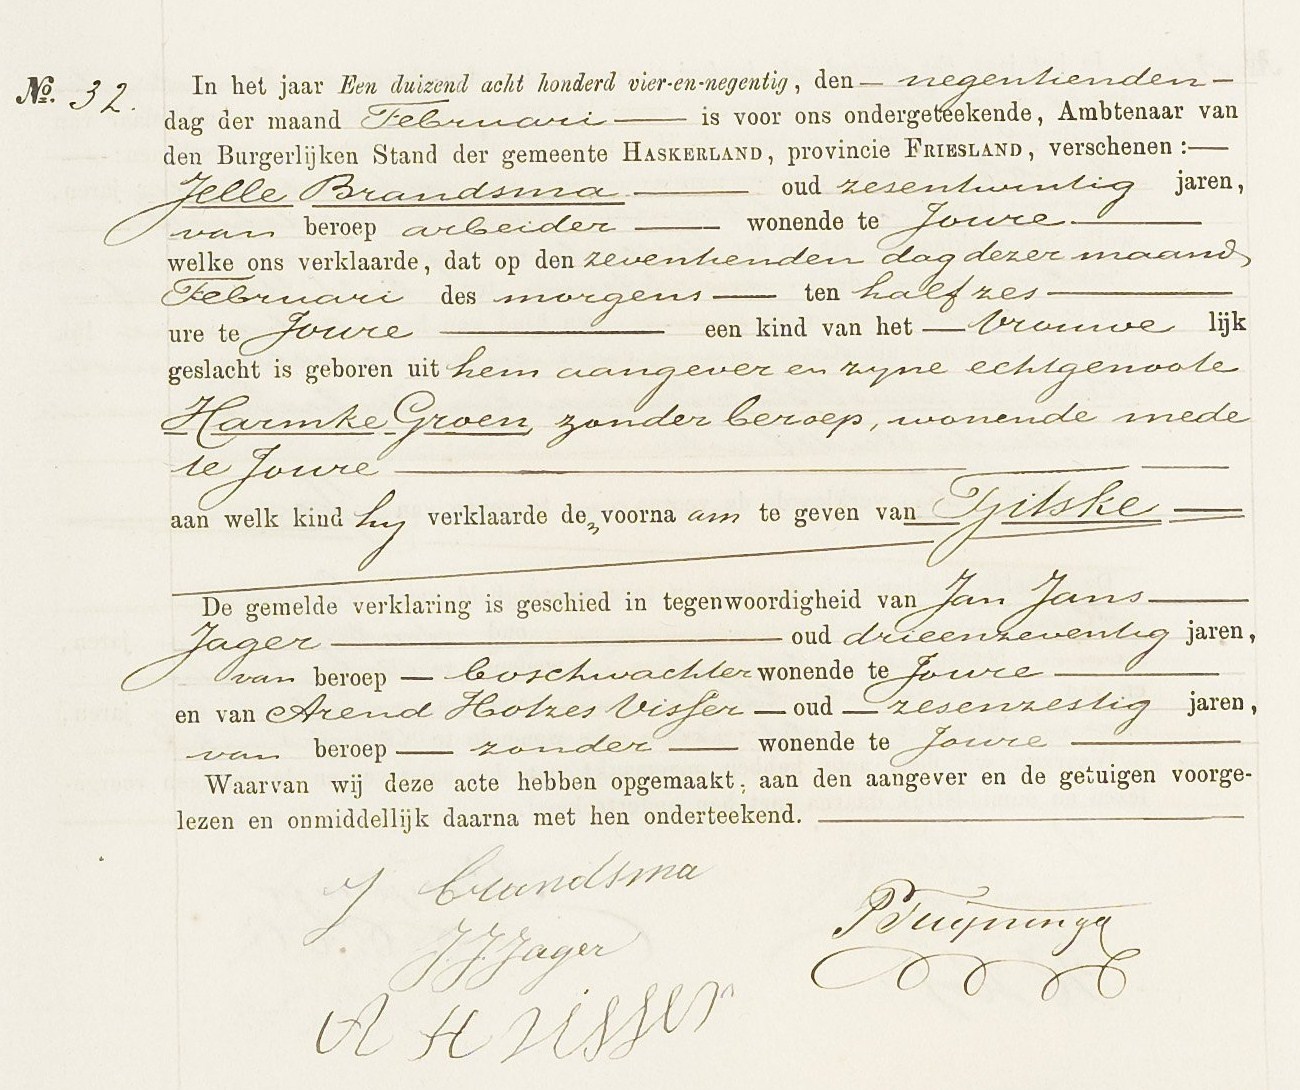 No. 32. In het jaar Een duizend acht honderd vier-en-negentig, den — negentienden —
dag der maand Februari — is voor ons ondergeteekende, Ambtenaar van
den Burgerlijken Stand der gemeente HASKERLAND, provincie FRIESLAND, verschenen :—
Jelle Brandsma — oud zesentwintig jaren,
van beroep arbeider — wonende te Joure —
welke ons verklaarde, dat op den zeventienden dag dezer maand
Februari des morgens — ten half zes —
ure te Joure — een kind van het — Vrouwe lijk
geslacht is geboren uit hem aangever en zyne echtgenoote
Harmke Groen, zonder beroep, wonende mede
te Joure —
aan welk kind hy verklaarde de voorna am te geven van Tjitske —
De gemelde verklaring is geschied in tegenwoordigheid van Jan Jans —
Jager — oud drieenzeventig jaren,
van beroep — boschwachter wonende te Joure —
en van Arend Hotzes Visser — oud — zesenzestig jaren,
van beroep — zonder — wonende te Joure —
Waarvan wij deze acte hebben opgemaakt, aan den aangever en de getuigen voorge-
lezen en onmiddellijk daarna met hen onderteekend. —
J Brandsma
P Tuijninga
J. J. Jager
A H Visser